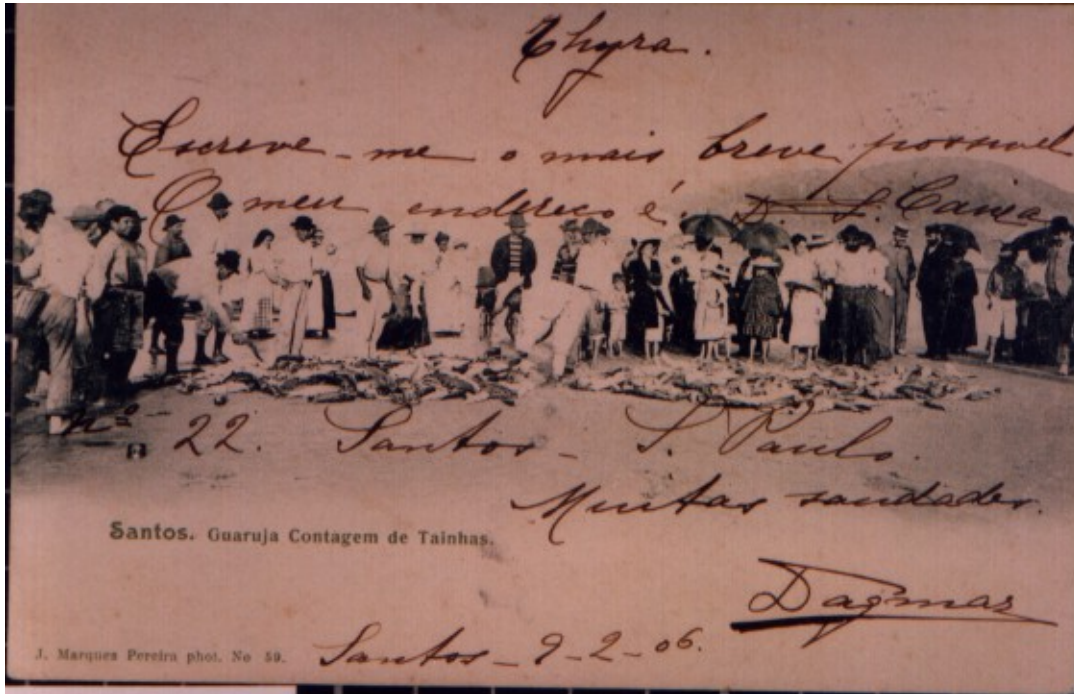 Thyra.
Escreve-me o mais breve possivel
O meu endereço é
nº 22. Santos - S. Paulo.
Muitas saudades.
Santos. Guaruja Contagem de Tainhas.
Dagmar
J. Marques Pereira phot. No 59.
Santos - 9-2-06.